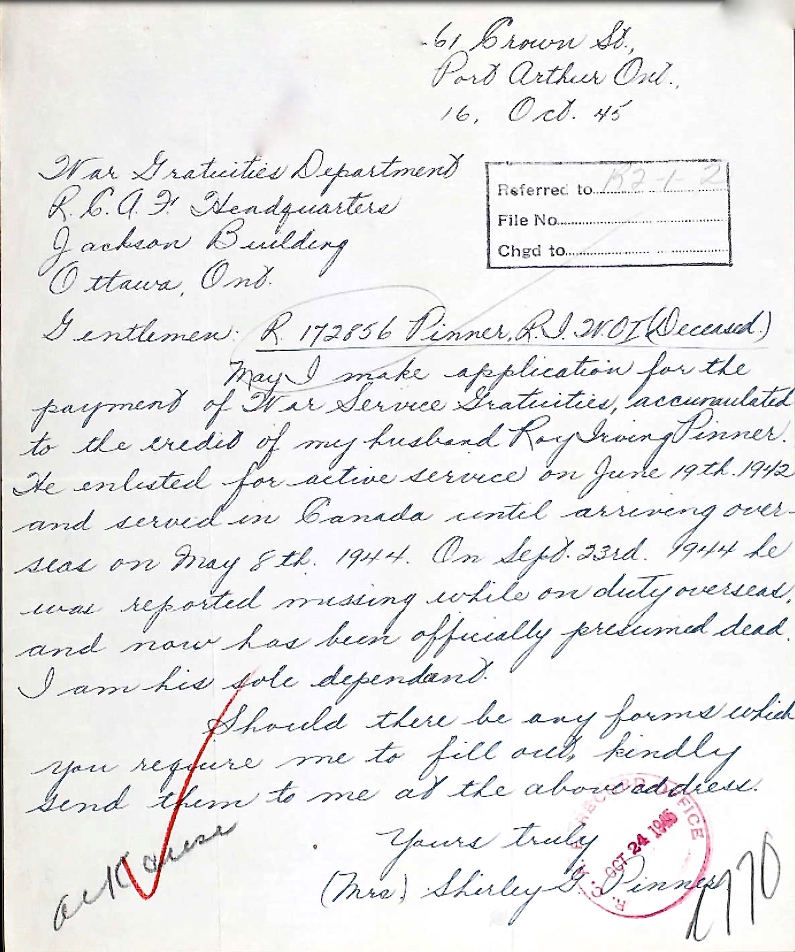 61 Crown St.,
Port Arthur Ont.,
16, Oct. 45
War Gratuities Department
R.C.A.F. Headquarters
Jackson Building
Ottawa, Ont.
Referred to
File No.
Chgd to
Gentlemen: R. 172856 Pinner, R.I. WOI (Deceased.)
May I make application for the
payment of War Service Gratuities, accumulated
to the credit of my husband Roy Irving Pinner.
He enlisted for active service on June 19th. 1942
and served in Canada until arriving over-
seas on May 8th. 1944. On Sept. 23rd. 1944 he
was reported missing while on duty overseas,
and now has been officially presumed dead.
I am his sole dependant.
Should there be any forms which
you require me to fill out, kindly
send them to me at the above address.
Yours truly
(Mrs) Shirley G. Pinner
RECORD OFFICE
OCT 24 1945